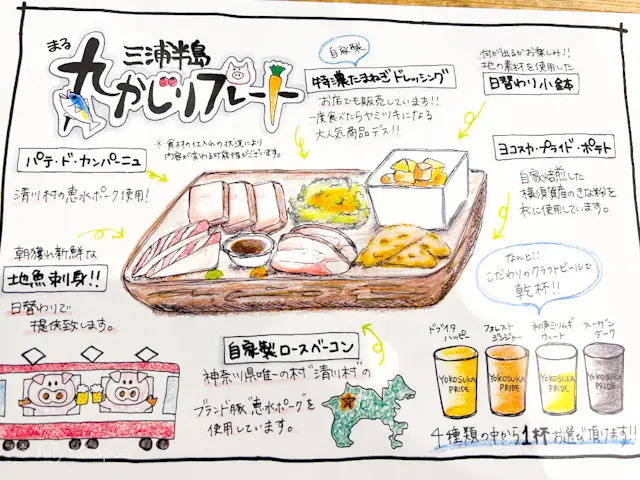 三浦半島
まる
九かじりプレート
※食材の仕入れの状況により
内容が変わる可能性がございます。
自家製
特濃たまねぎドレッシング
お店でも販売しています!!
一度食べたらヤミツキになる
大人気商品デス!!
何が出るかお楽しみ!!
地の素材を使用した
日替わり小鉢
パテ・ド・カンパーニュ
清川村の恵水ポーク使用!
ヨコスカ・プライド・ポテト
自家焙煎した
横須賀産のきな粉を
衣に使用しています。
朝獲れ新鮮な
地魚刺身!!
日替わりで
提供致します。
なんと!!
こだわりのクラフトビールで
乾杯!!
自家製ロースベーコン
神奈川県唯一の村"清川村"の
ブランド豚"恵水ポーク"を
使用しています。
ドブイタ
ハッピー
フォレスト
ジンジャー
初声ミツムギ
ウィート
スーザン
ダーク
YOKOSUKA
PRIDE
YOKOSUKA
PRIDE
YOKOSUKA
PRIDE
YOKOSUKA
PRIDE
4種類の中から1杯お選び頂けます!!